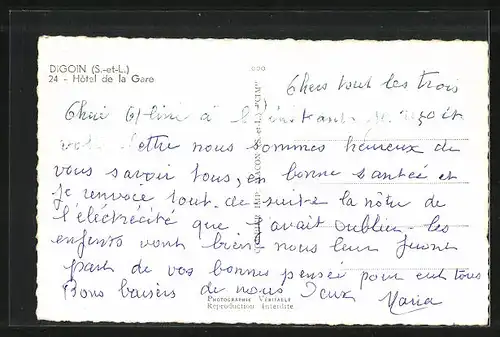 DIGOIN (S.-et-L.)
24 - Hôtel de la Gare
Chers tout les trois
à l'instant je
lettre nous sommes heureux de
vous savoir tous, en bonne santée et
je renvoie tout de suite la note de
l'éléctrécité que j'avait oublier les
enfents vont bien nous leur feront
part de vos bonnes pensée pour eux tous
Bons baisers de nous Deux
Maria
PHOTOGRAPHIE VÉRITABLE
Reproduction Interdite